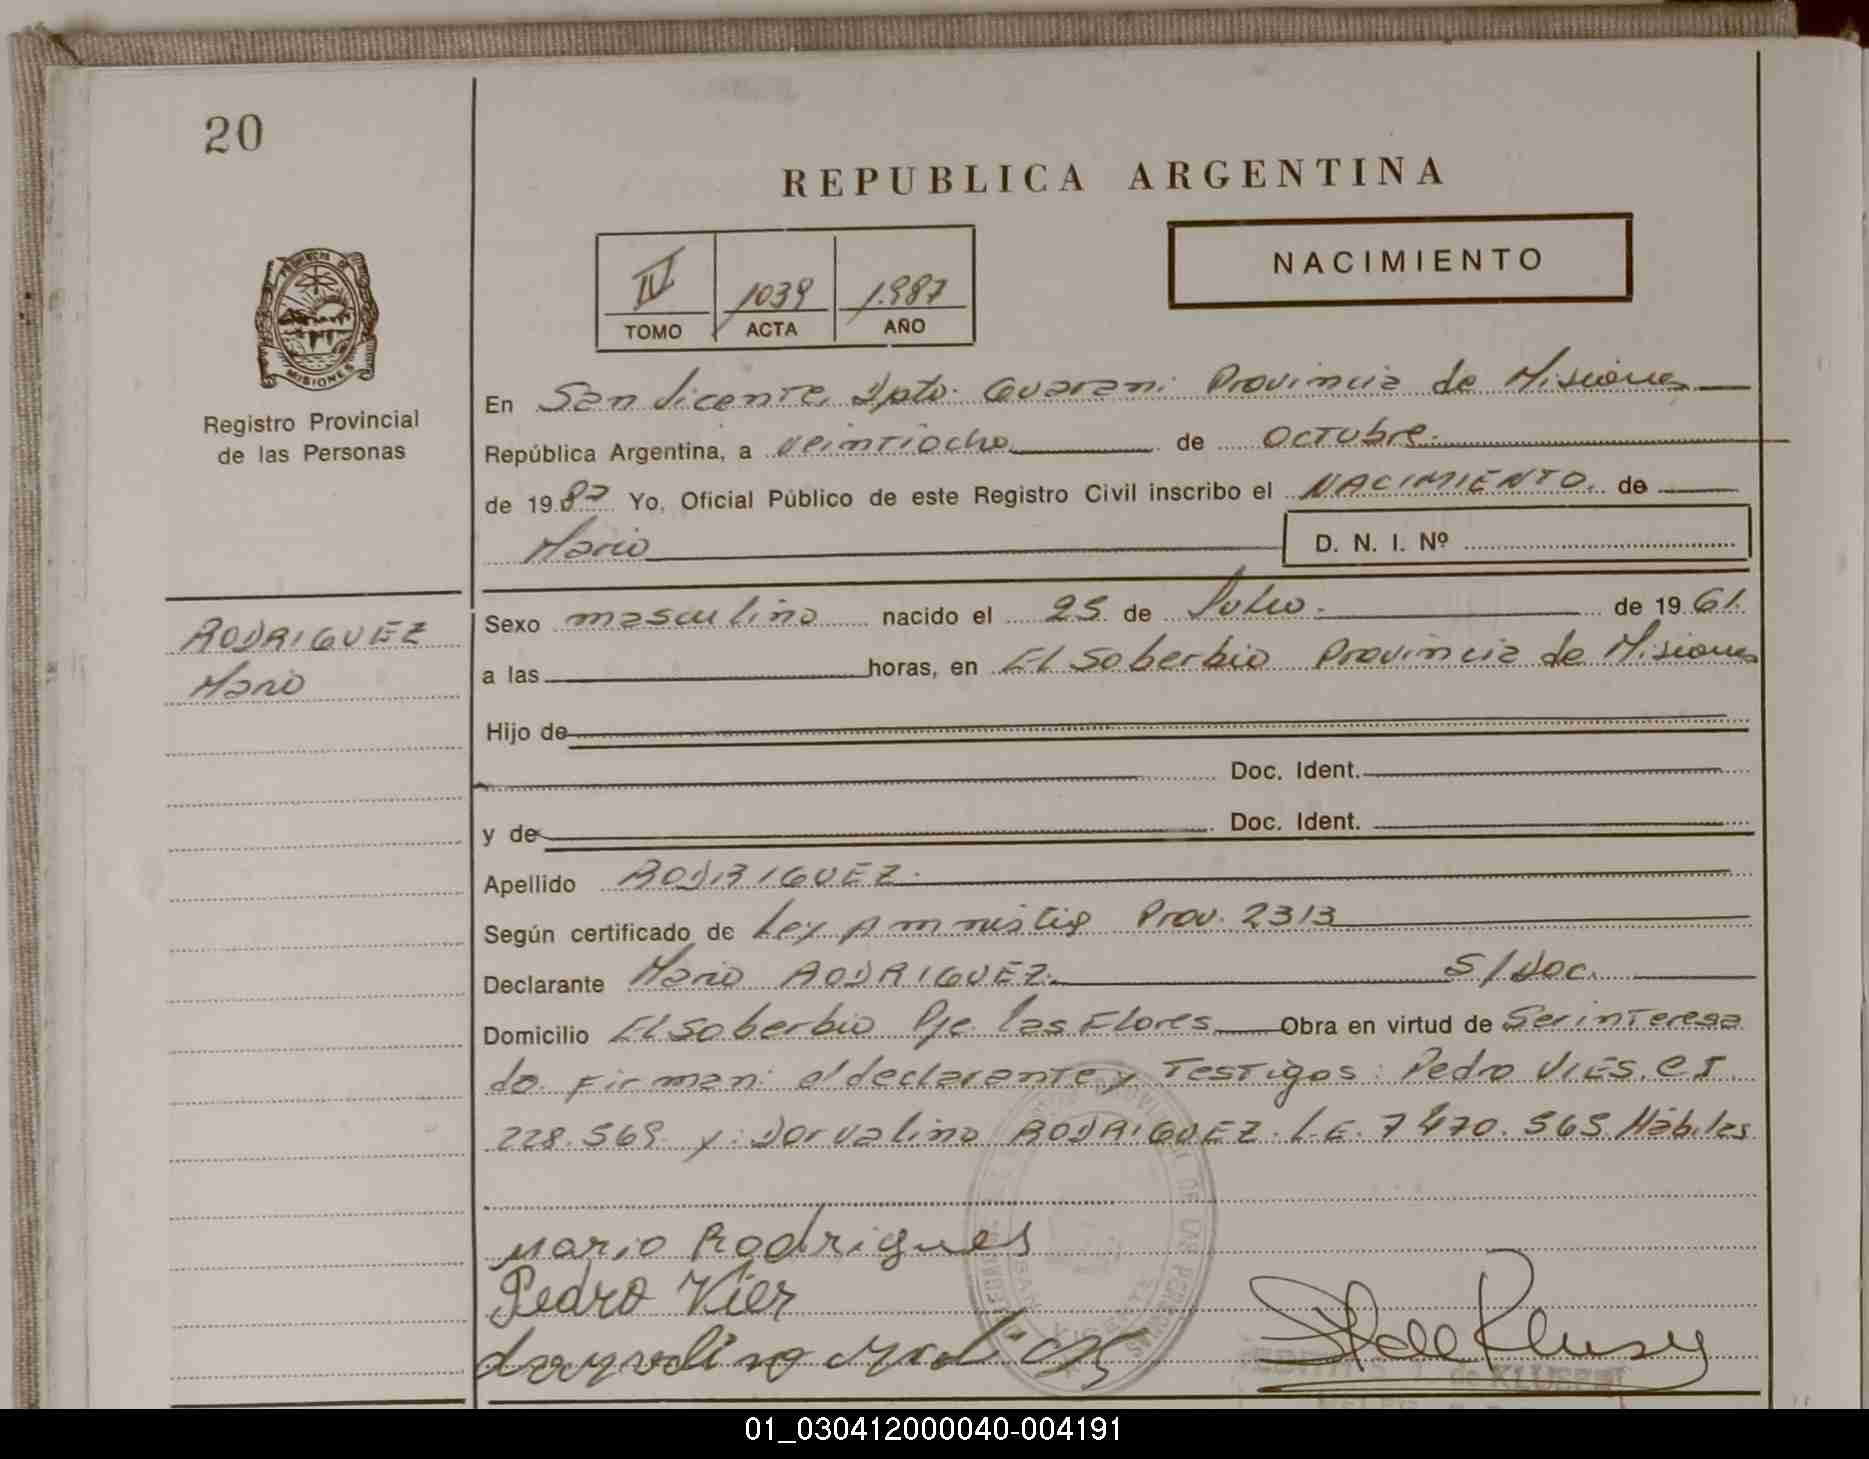 20
REPUBLICA ARGENTINA
NACIMIENTO
IV 1039 1.987
TOMO ACTA AÑO
PROVINCIA DE
MISIONES
Registro Provincial
de las Personas
En San Vicente, Dpto. Guarani Provincia de Misiones
República Argentina, a veintiocho de Octubre.
de 1987 Yo, Oficial Público de este Registro Civil inscribo el NACIMIENTO. de
Mario D. N. I. Nº
RODRIGUEZ
Mario
Sexo masculino nacido el 25 de Julio. de 1961.
a las horas, en El Soberbio Provincia de Misiones
Hijo de
Doc. Ident.
y de Doc. Ident.
Apellido RODRIGUEZ.
Según certificado de Ley Amnistia Prov. 2313
Declarante Mario RODRIGUEZ. S/Doc.
Domicilio El Soberbio Pje. las Flores Obra en virtud de Ser interesa
do. Firman: el declarante y Testigos: Pedro VIES. C I
228.569. y: Dorvalino RODRIGUEZ. L.E. 7470.565. Hábiles
Mario Rodrigues
Pedro Vier
DE LAS PERSONAS
de KLUSENER
01_030412000040-004191